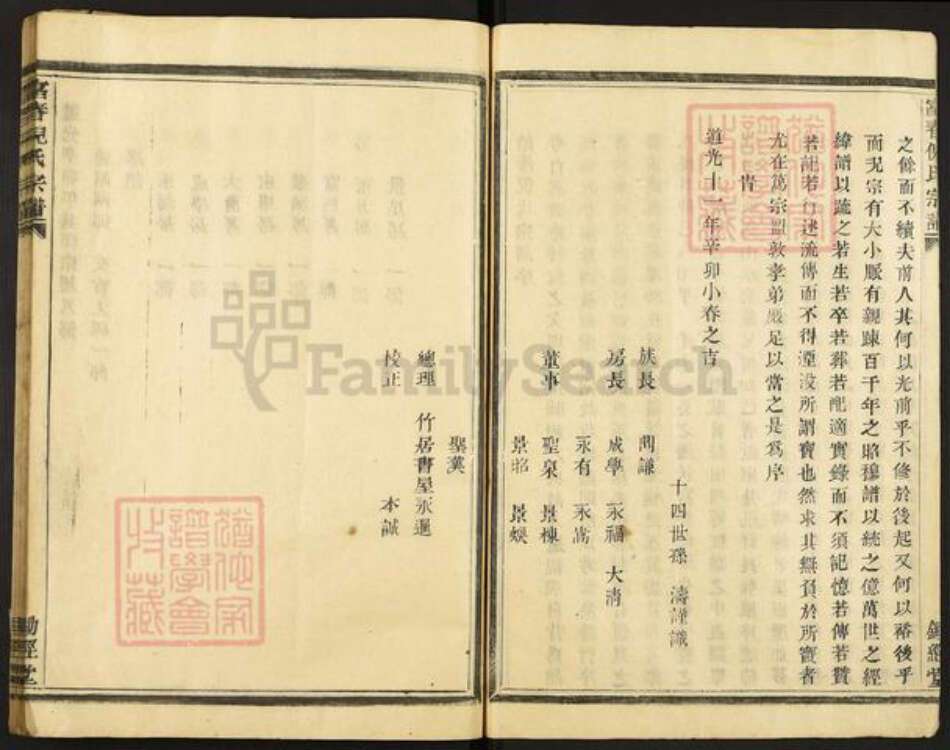 之餘而不續夫前人其何以光前乎不修於後起又何以裕後乎
而況宗有大小脈有親踈百千年之昭穆譜以統之億萬世之經
緯譜以疏之若生若卒若葬若配適實錄而不須記憶若傳若贊
若記若行述流傳而不得湮沒所謂寶也然求其無負於所寶者
尤在篤宗盟敦孝弟嚴足以當之是為序
旹
道光十一年辛卯小春之吉
十四世孫 濤謹識
族長 問謙
房長 成學 永福 大清
永有 永嵩
董事 聖泉 景棟
景昭 景娛
聖漢
總理 竹居書屋永暹
校正 本誠
富春倪氏宗譜
鋤經堂
富春倪氏宗譜
鋤經堂
譜學會
收藏
譜學會
收藏
FamilySearch